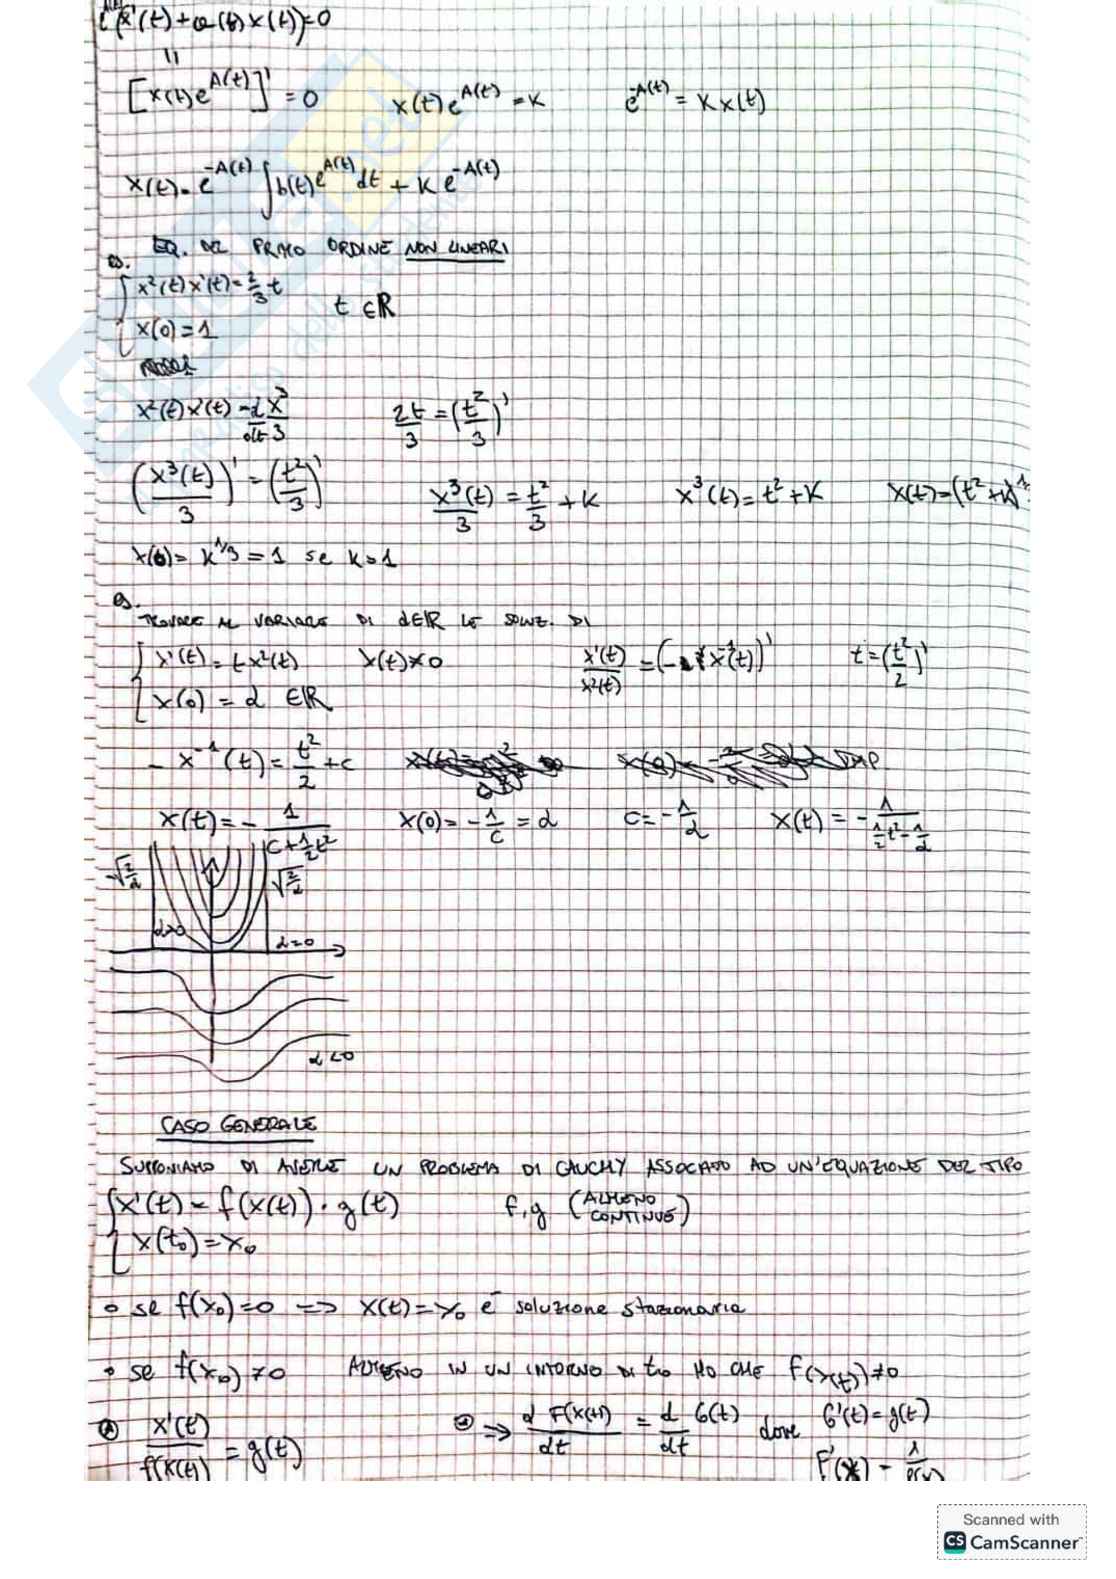 (x'(t)+a(t)x(t))=0
"
[x(t)e^{A(t)}]' = 0   x(t)e^{A(t)} = K   e^{-A(t)} = K x(t)
x(t) = e^{-A(t)} ∫b(t)e^{A(t)}dt + K e^{-A(t)}
EQ. DEL PRIMO ORDINE NON LINEARI
es.
{ x²(t)x'(t) = 2/3 t   t ∈ R
x(0) = 1
x²(t)x'(t) = d/dt x³/3   2t/3 = (t²/3)'
(x³(t)/3)' = (t²/3)'   x³(t)/3 = t²/3 + K   x³(t) = t² + K   x(t) = (t²+K)^{1/
x(0) = K^{1/3} = 1 se K = 1
es.
TROVARE AL VARIARE DI α∈R LE SOLUZ. DI
{ x'(t) = t x²(t)   x(t)≠0   x'(t)/x²(t) = (-x^{-1}(t))'   t = (t²/2)'
x(0) = α ∈ R
- x^{-1}(t) = t²/2 + c
x(t) = - 1/(c + 1/2 t²)   x(0) = -1/c = α   c = -1/α   x(t) = - 1/(1/2 t² - 1/α)
-√(2/α)   √(2/α)
α>0   α=0
α<0
CASO GENERALE
SUPPONIAMO DI AVERE UN PROBLEMA DI CAUCHY ASSOCIATO AD UN'EQUAZIONE DEL TIPO
{ x'(t) = f(x(t)) · g(t)   f,g (ALMENO CONTINUE)
x(t₀) = x₀
• se f(x₀)=0 => x(t)=x₀ è soluzione stazionaria
• se f(x₀)≠0 ALMENO IN UN INTORNO DI t₀ HO CHE f(x(t))≠0
x'(t)/f(x(t)) = g(t)   => d F(x(t))/dt = d/dt G(t) dove G'(t)=g(t)
F'(x) = 1/f(x)
Scanned with
CS CamScanner